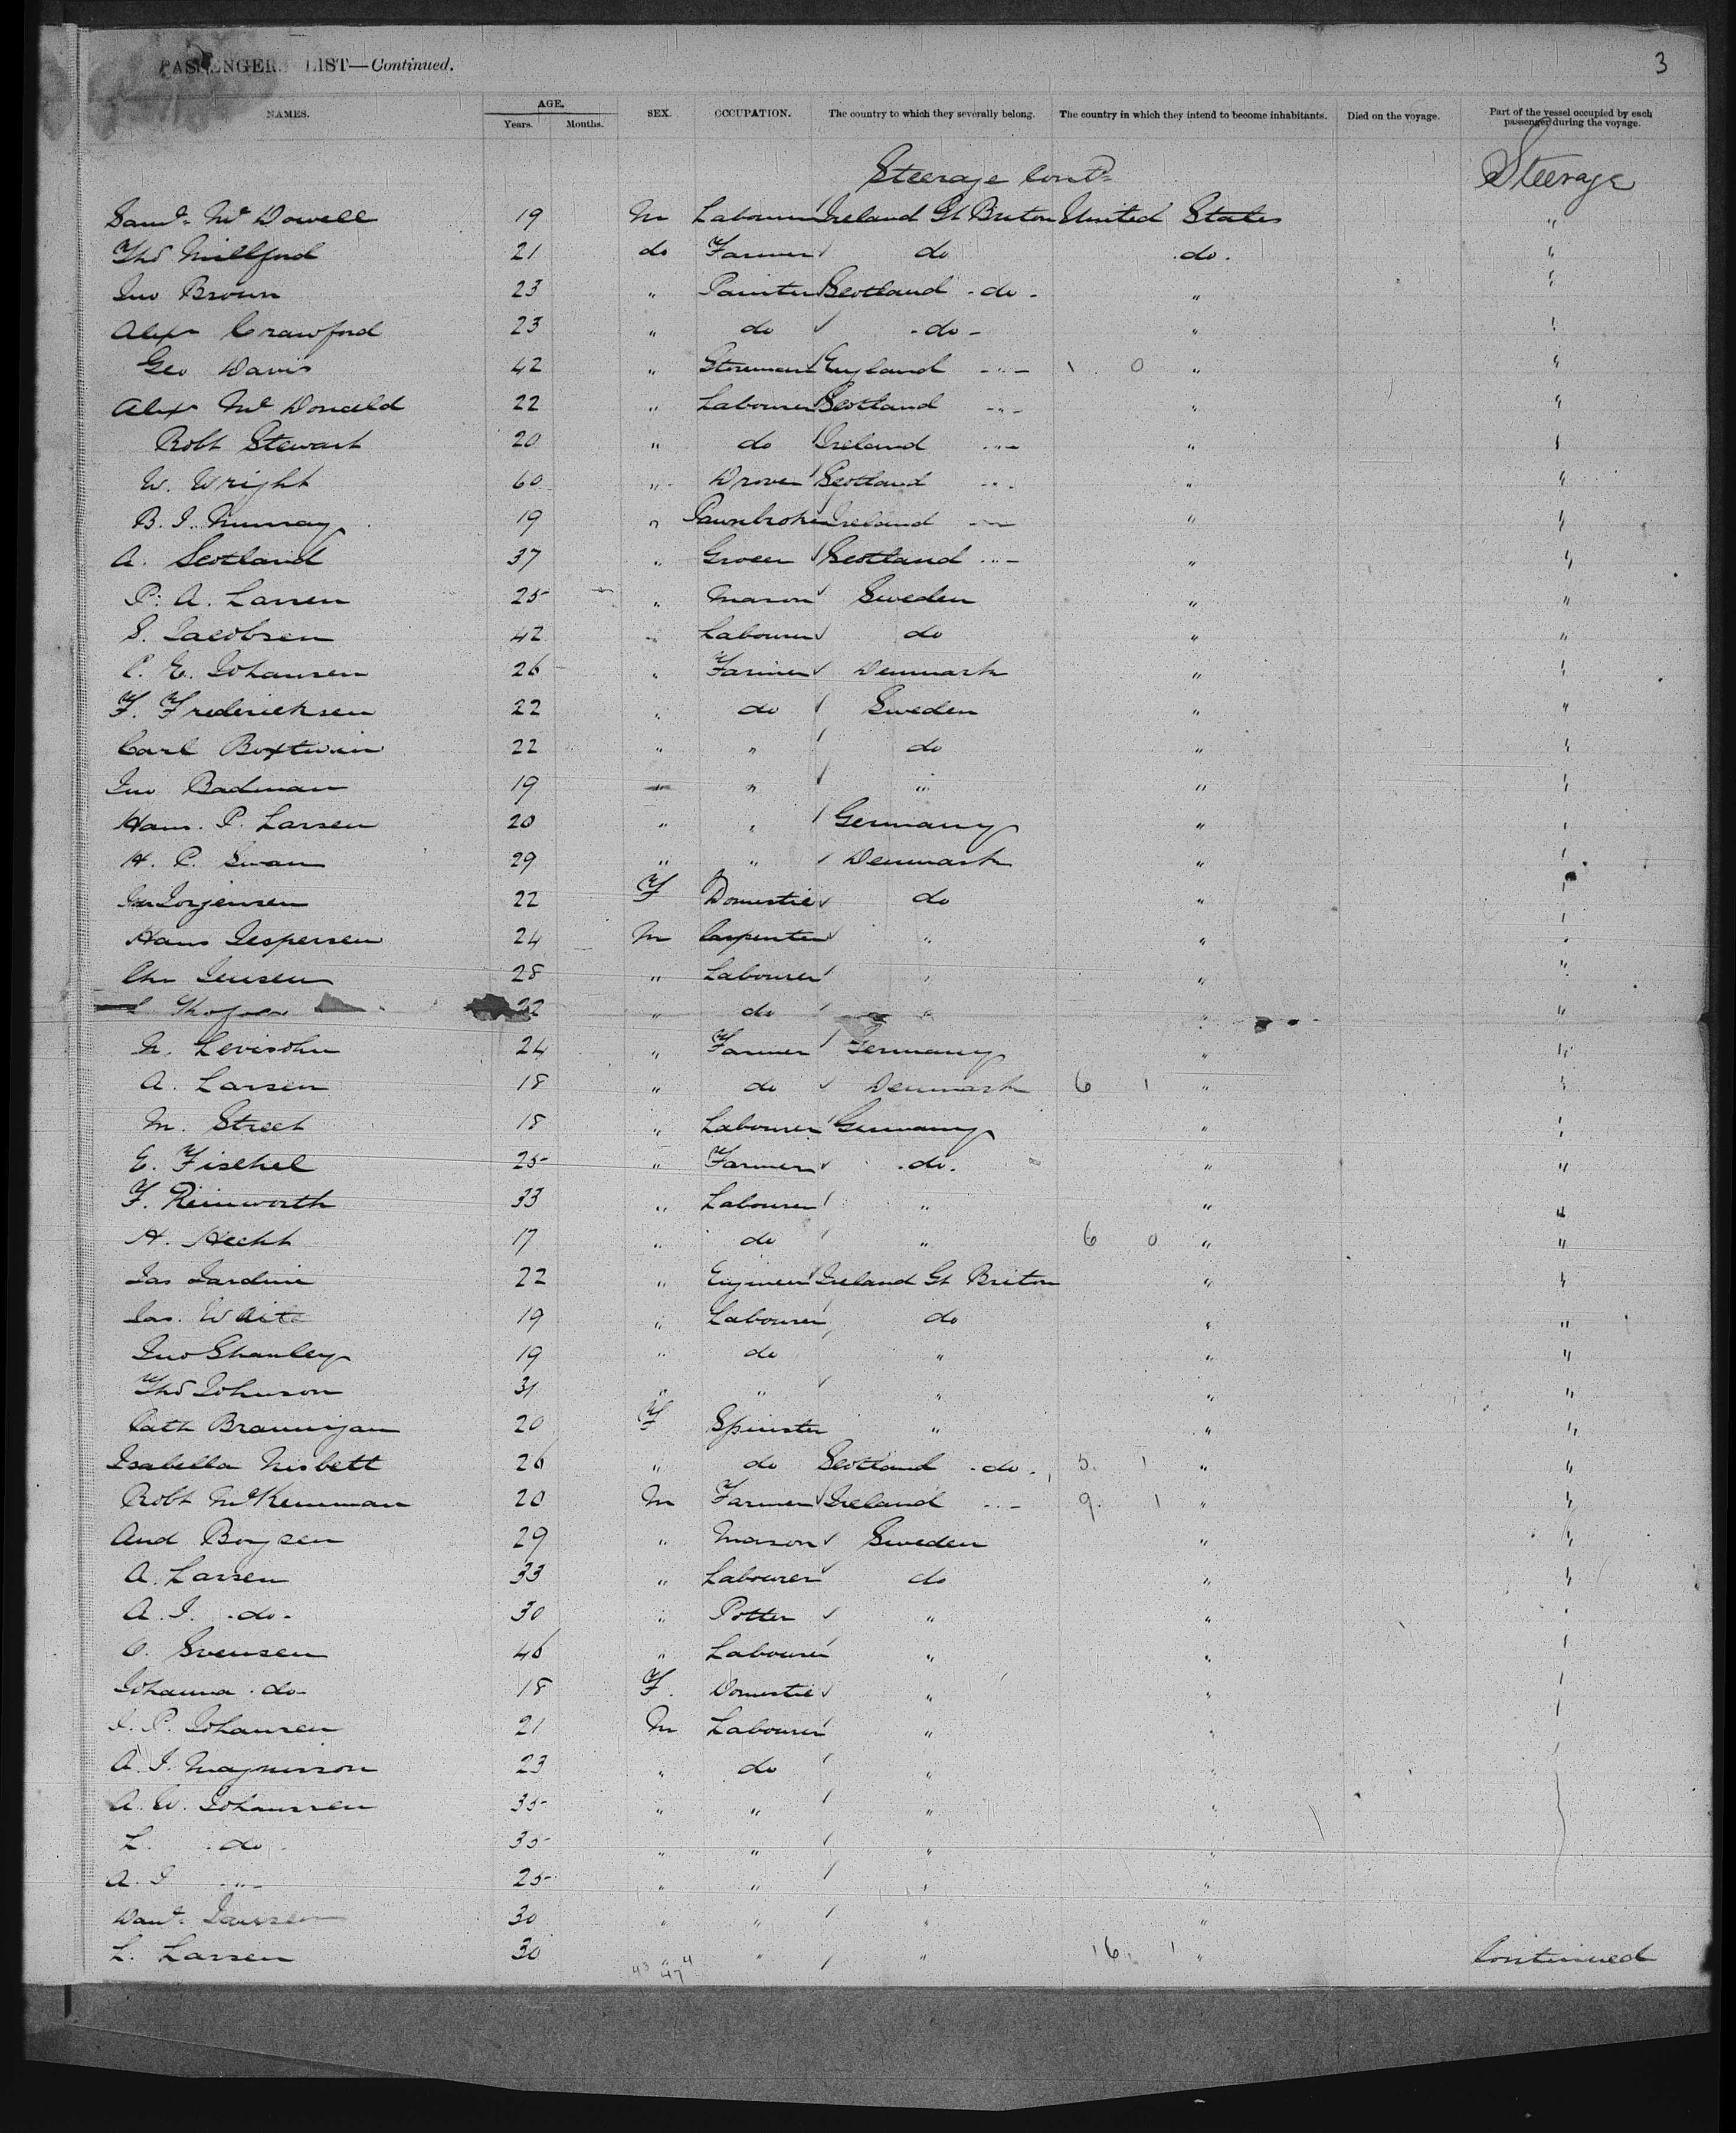 PASSENGER LIST—Continued. 3
NAMES. AGE. Years. Months. SEX. OCCUPATION. The country to which they severally belong. The country in which they intend to become inhabitants. Died on the voyage. Part of the vessel occupied by each passenger during the voyage.
Steerage Cont^d Steerage
Sam^l Mc Dowell 19 M Labourer Ireland Gt Briton United States "
Tho^s Millford 21 do Farmer do do. "
Jno Brown 23 " Painter Scotland - do - " "
Alex^r Crawford 23 " do - do - " "
Geo Davis 42 " Storeman England - " - 1 0 " "
Alex^r Mc Donald 22 " Labourer Scotland - " - " "
Robt Stewart 20 " do Ireland - " - " "
W. Wright 60 " Drover Scotland - " - " "
B. J. Murray 19 " Pawnbroker Ireland - " - " "
A. Scotland 37 " Grocer Scotland - " - " "
P. A. Larsen 25 " Mason Sweden " "
S. Jacobsen 42 " Labourer do " "
P. E. Johansen 26 " Farmer Denmark " "
F. Fredericksen 22 " do Sweden " "
Carl 22 " " do " "
Jno Badman 19 " " " " "
Hans. P. Larsen 20 " " Germany " "
H. P. Swan 29 " " Denmark " "
Jorjensen 22 F Domestic do " "
Hans Jespersen 24 M Carpenter " " "
Chr Jensen 28 " Labourer " " "
L 22 " do " " "
N. Levisohn 24 " Farmer Germany " "
A. Larsen 18 " do Denmark 6 1 " "
M. Street 18 " Labourer Germany " "
E. Fischel 25 " Farmer do. " "
F. Reinworth 33 " Labourer " " "
H. Hecht 17 " do " 6 0 " "
Jas Jardine 22 " Engineer Ireland Gt Briton " "
Jas. Waite 19 " Labourer do " "
Jno Shanley 19 " do " " "
Tho^s Johnson 31 " " " " "
Cath Brannigan 20 F Spinster " " "
Isabella Nisbett 26 " do Scotland - do - 5. 1 " "
Robt McKemman 20 M Farmer Ireland - " - 9. 1 " "
And Boysen 29 " Mason Sweden " "
A. Larsen 33 " Labourer do " "
A. J. - do - 30 " Potter " " "
O. Svensen 46 " Labourer " " "
Johanna - do - 18 F. Domestic " " "
J. P. Johansen 21 M Labourer " " "
A. J. Magnusson 23 " do " " "
A. W. Johanssen 35 " " " "
L. - do - 35 " " " "
A. J - " - 25 " " " "
Dan^l Jansen 30 " " " "
L. Larsen 30 " " " 16 1 " Continued
43 4
47